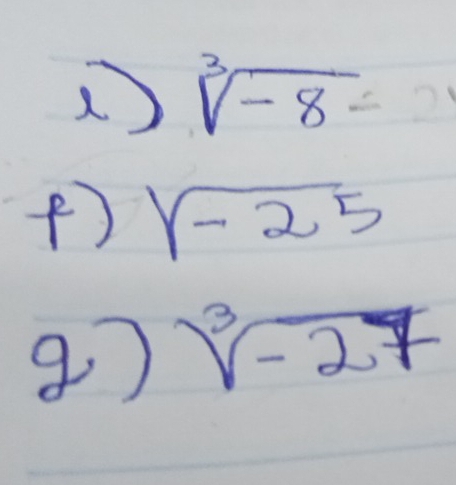 e) ∛-8 =
f) √-25
g) ∛-27